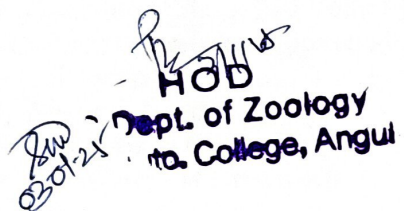 HOD
Dept. of Zoology
to. College, Angul
03-01-21